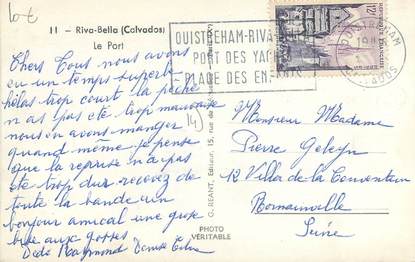 11 — Riva-Bella (Calvados)
Le Port
Chers Tous nous avons
eu un temps superbe
hélas trop court la pêche
n as pas ete trop mauvaise
nous en avons manger
quand même je pense
que la reprise n'a pas
ete trop dur recevez de
toute la bande un
bonjour amical une grosse
bise aux gosses
Dédé Raymond Denise
OUISTREHAM-RIVA
PORT DES YAC
PLAGE DES ENFANTS
OUISTREHAM
CALVADOS
12F
G. RÉANT, Éditeur, 15, rue
PHOTO
VÉRITABLE
Monsieur Madame
Pierre
12 Villa de la Convention
Seine